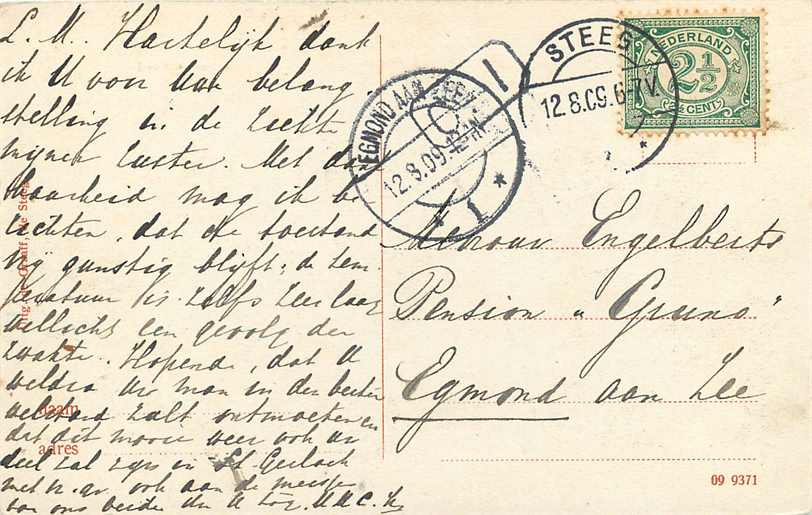 L. M. Hartelijk dank
ik U voor Uw belang-
stelling in de ziekte
mijner zuster. Met dank-
baarheid mag ik be-
richten, dat de toestand
vrij gunstig blijft; de tem-
peratuur is zelfs zeer laag
wellicht een gevolg der
zwakte. Hopende, dat U
weldra Uw man in den besten
welstand zult ontmoeten en
dat dit mooie weer ook uw
deel zal zijn in St. Gerlach
met gr. ook aan de meisjes
van ons beiden
naam
adres
EGMOND AAN ZEE
12.8.09.
1
STEEG
12.8.09.6-7V.
NEDERLAND
2½
CENT
Mevrouw Engelberts
Pension „Gruno"
Egmond aan Zee
09 9371